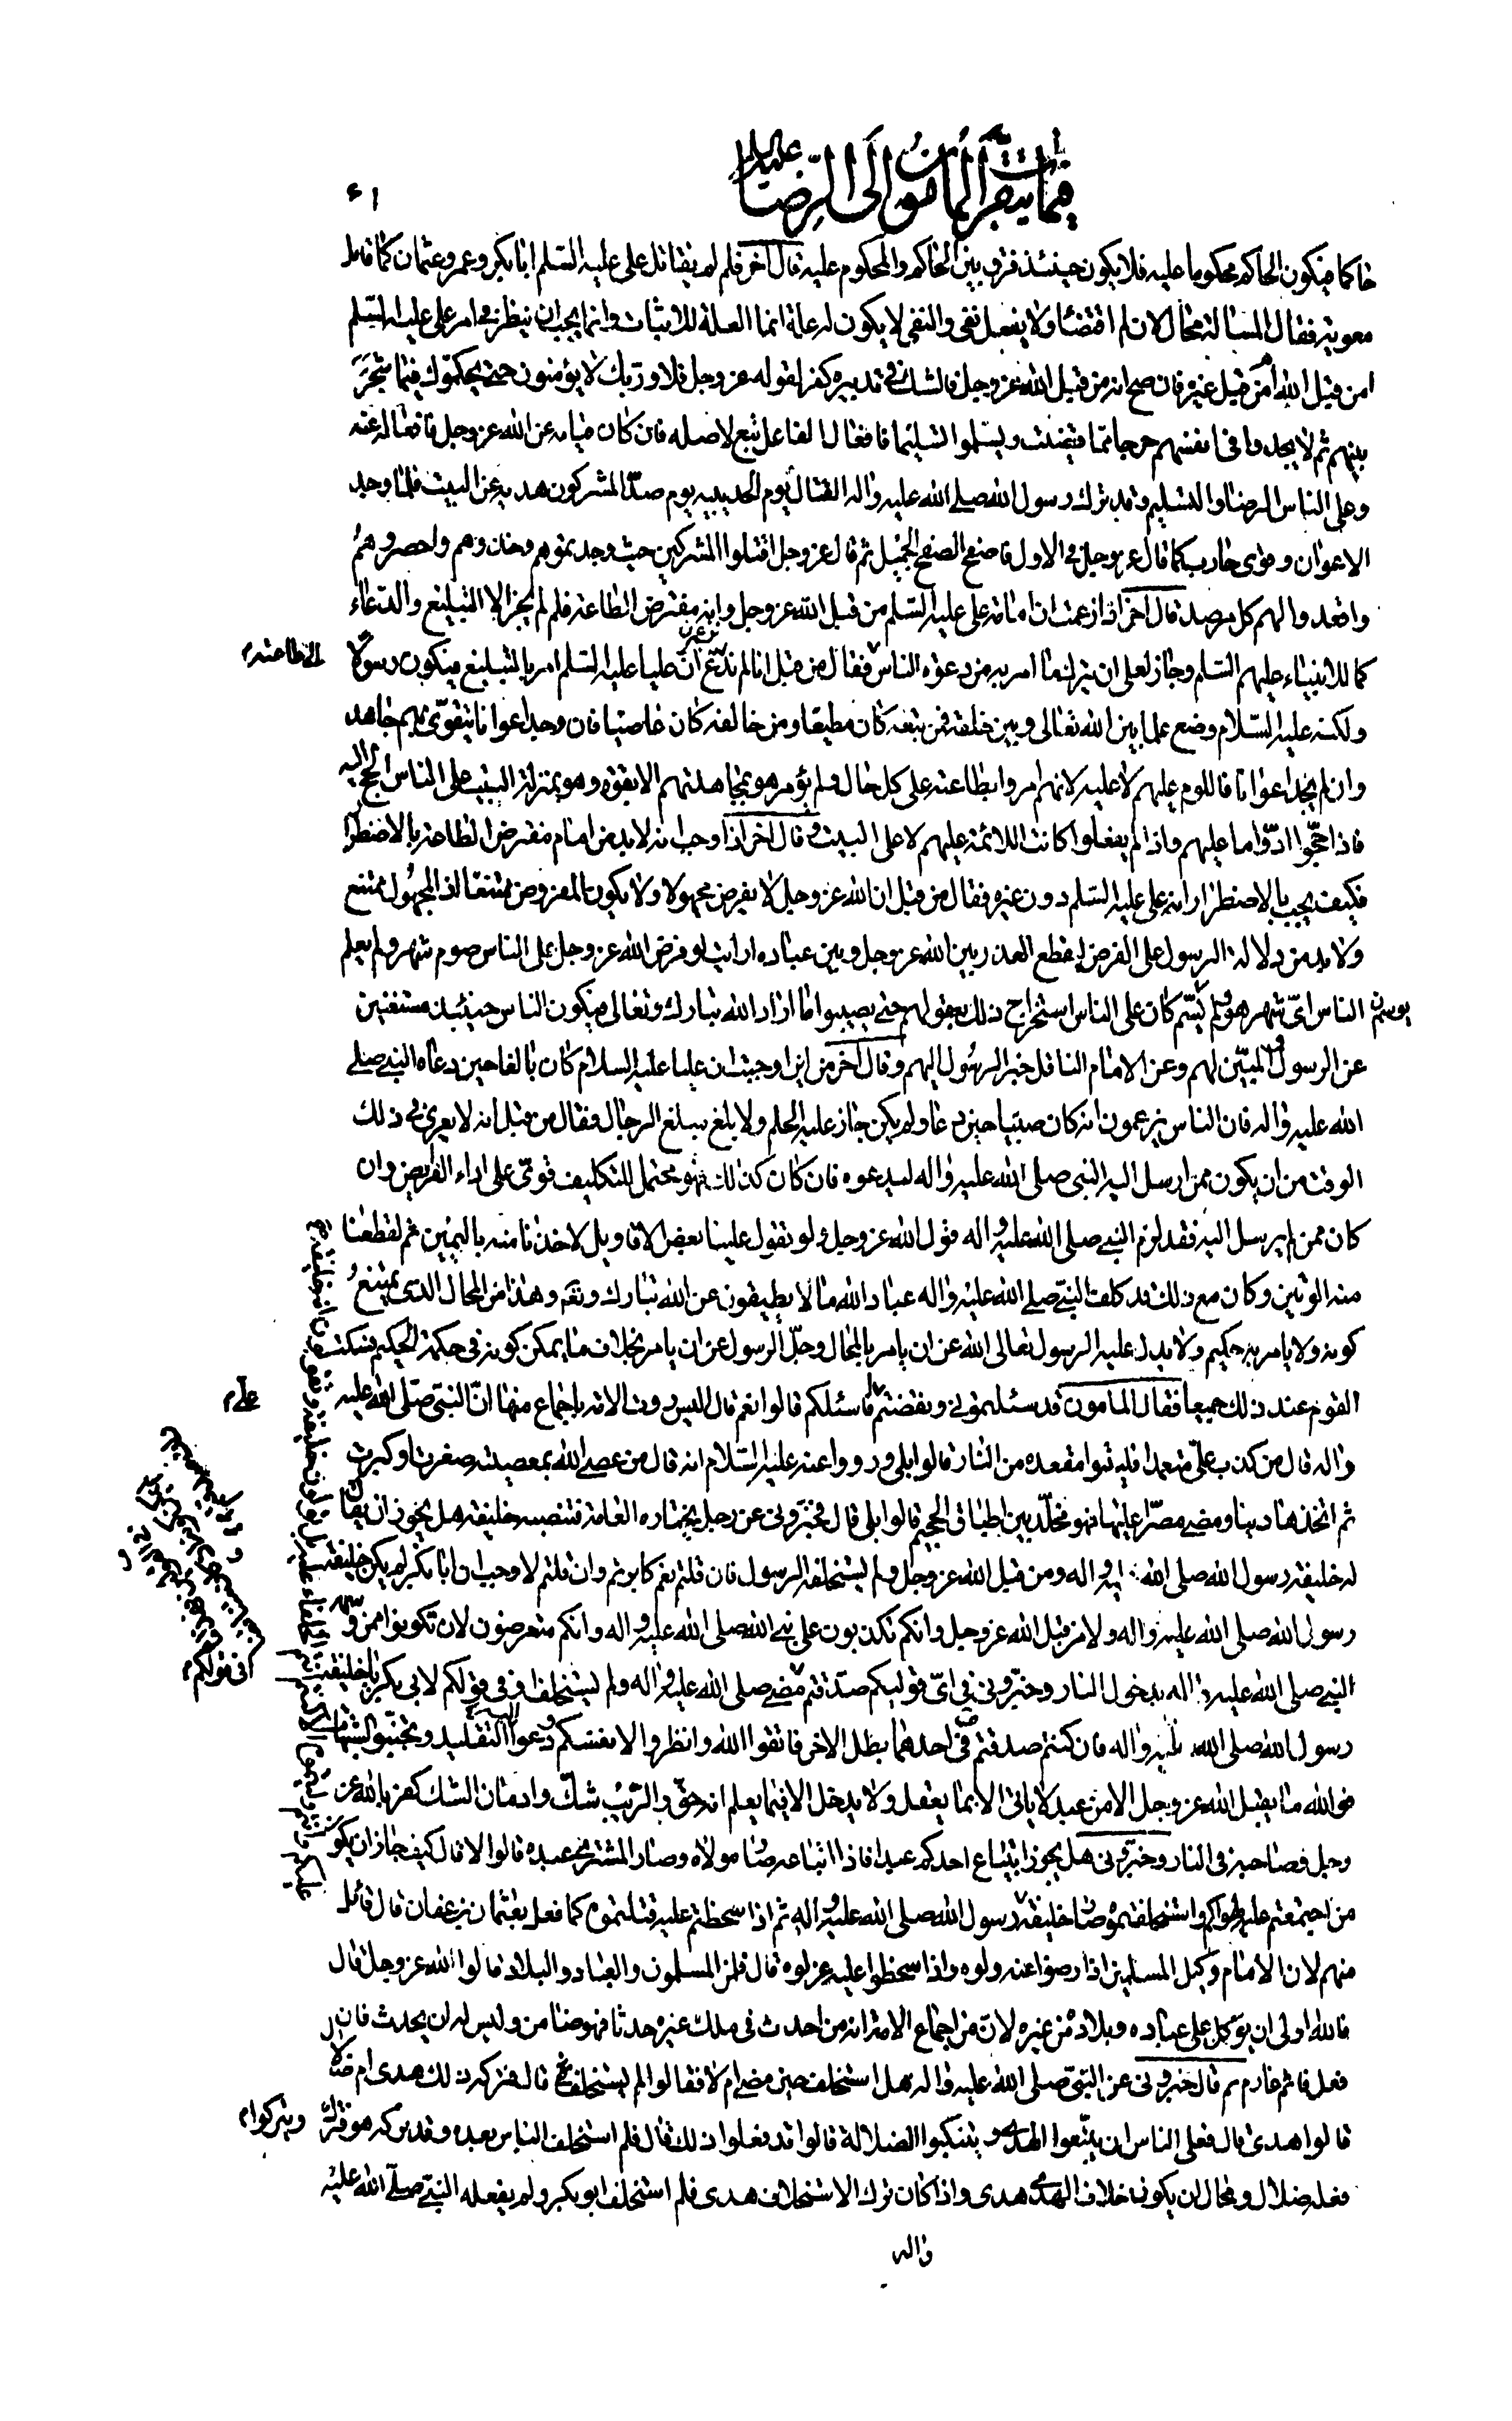 فيما يتقرب المأمون الى الرضا عليه السلام
حاكما فيكون الحاكم محكوما عليه فلا يكون حينئذ فرق بين الحاكم والمحكوم عليه قال اخر فلم لم يقاتل على عليه السلم ابا بكر وعمر وعثمان كما قاتل
معوية فقال المسالة محال لان لم اقتضاء ولا يفعل نفى والنفى لا يكون له علة انما العلة للاثبات وانما يجب ان ينظر فى امر على عليه السلم
امن قبل الله ام من قبل غيره فان صح انه من قبل الله عز وجل فالشك فى تدبيره كفر لقوله عز وجل فلا وربك لا يؤمنون حتى يحكموك فيما شجر
بينهم ثم لا يجدوا فى انفسهم حرجا مما قضيت ويسلموا تسليما فافعال الفاعل تبع لاصله فان كان قيامه عن الله عز وجل فافعاله عنه
وعلى الناس الرضا والتسليم وقد ترك رسول الله صلى الله عليه واله القتال يوم الحديبيه يوم صد المشركون هديه عن البيت فلما وجد
الاعوان وقوى حارب كما قال عز وجل فى الاول فاصفح الصفح الجميل ثم قال عز وجل اقتلوا المشركين حيث وجدتموهم وخذوهم واحصروهم
واقعدوا لهم كل مرصد قال اخر اذا زعمت ان امامة على عليه السلم من قبل الله عز وجل وانه مفترض الطاعة فلم لم يجز الا التبليغ والدعاء
كما للانبياء عليهم السلم وجاز لعلى ان يترك ما امر به من دعوة الناس الى طاعته فقال من قبل انا لم ندع ان عليا عليه السلم امر بالتبليغ فيكون رسولا
ولكنه عليه السلام وضع علما بين الله تعالى وبين خلقه فمن تبعه كان مطيعا ومن خالفه كان عاصيا فان وجد اعوانا يتقوى بهم جاهد
وان لم يجد اعوانا فاللوم عليهم لا عليه لانهم امروا بطاعته على كل حال ولم يؤمر هو بمجاهدتهم الا بقوة وهو بمنزلة البيت على الناس الحج اليه
فاذا حجوا ادوا ما عليهم واذا لم يفعلوا كانت اللائمة عليهم لا على البيت وقال اخر اذا وجب انه لا بد من امام مفترض الطاعة بالاضطرار
فكيف يجب بالاضطرار انه على عليه السلم دون غيره فقال من قبل ان الله عز وجل لا يفرض مجهولا ولا يكون المفروض ممتنعا اذ المجهول ممتنع
ولا بد من دلالة الرسول على الفرض ليقطع العذر بين الله عز وجل وبين عباده ارايت لو فرض الله عز وجل على الناس صوم شهر ولم يعلم
الناس اى شهر هو ولم يسم كان على الناس استخراج ذلك بعقولهم حتى يصيبوا ما اراد الله تبارك وتعالى فيكون الناس حينئذ مستغنين
عن الرسول المبين لهم وعن الامام الناقل خبر الرسول اليهم وقال اخر من اين اوجبت ان عليا عليه السلام كان بالغا حين دعاه النبى صلى
الله عليه واله فان الناس يزعمون انه كان صبيا حين دعا ولم يكن جاز عليه الحلم ولا بلغ مبلغ الرجال فقال من قبل انه لا يعرى فى ذلك
الوقت من ان يكون ممن ارسل اليه النبى صلى الله عليه واله ليدعوه فان كان كذلك فهو محتمل للتكليف قوى على اداء الفرايض وان
كان ممن لم يرسل اليه فقد لزم النبى صلى الله عليه واله قول الله عز وجل ولو تقول علينا بعض الاقاويل لاخذنا منه باليمين ثم لقطعنا
منه الوتين وكان مع ذلك قد كلف النبى صلى الله عليه واله عباد الله ما لا يطيقون عن الله تبارك وتعالى وهذا من المحال الذى يمتنع
كونه ولا يامر به حكيم ولا يدل عليه الرسول تعالى الله عن ان يامر بالمحال وجل الرسول عن ان يامر بخلاف ما يمكن كونه فى حكمة الحكيم فسكت
القوم عند ذلك جميعا فقال المامون قد سئلتمونى ونقضتم على فاسئلكم قالوا نعم قال اليس روت الامة باجماع منها ان النبى صلى الله عليه
واله قال من كذب على متعمدا فليتبوا مقعده من النار قالوا بلى ورووا عنه عليه السلام انه قال من عصى الله بمعصية صغرت او كبرت
ثم اتخذها دينا ومضى مصرا عليها فهو مخلد بين اطباق الجحيم قالوا بلى قال فخبرونى عن رجل يختاره العامة فتنصبه خليفة هل يجوز ان يقال
له خليفة رسول الله صلى الله عليه واله ومن قبل الله عز وجل ولم يستخلفه الرسول فان قلتم نعم كابرتم وان قلتم لا وجب ان ابا بكر لم يكن خليفة
رسول الله صلى الله عليه واله ولا من قبل الله عز وجل وانكم تكذبون على نبى الله صلى الله عليه واله وانكم متعرضون لان تكونوا ممن وسمه
النبى صلى الله عليه واله بدخول النار وخبرونى فى اى قوليكم صدقتم فى قولكم مضى صلى الله عليه واله ولم يستخلف او فى قولكم لابى بكر يا خليفة
رسول الله صلى الله عليه واله فان كنتم صدقتم فى احدهما بطل الاخر فاتقوا الله وانظروا لانفسكم ودعوا التقليد وتجنبوا الشبهات
فوالله ما يقبل الله عز وجل الا من عبد لا ياتى الا بما يعقل ولا يدخل الا فيما يعلم انه حق والريب شك وادمان الشك كفر بالله عز
وجل فصاحبه فى النار وخبرونى هل يجوز ابتياع احدكم عبدا فاذا ابتاعه صار مولاه وصار المشترى عبده قالوا لا قال كيف جاز ان يكون
من اجتمعتم عليه لهواكم واستخلفتموه صار خليفة رسول الله صلى الله عليه واله ثم اذا سخطتم عليه قتلتموه كما فعل بعثمان بن عفان قال قائل
منهم لان الامام وكيل المسلمين اذا رضوا عنه ولوه واذا سخطوا عليه عزلوه قال فلمن المسلمون والعباد والبلاد قالوا لله عز وجل قال
فالله اولى ان يوكل على عباده وبلاده من غيره لان من اجماع الامة انه من احدث فى ملك غيره حدثا فهو ضامن وليس له ان يحدث فان
فعل فاثم غارم ثم قال خبرونى عن النبى صلى الله عليه واله هل استخلف حين مضى ام لا فقالوا لم يستخلف قال فتركه ذلك هدى ام ضلال
قالوا هدى قال فعلى الناس ان يتبعوا الهدى ويتنكبوا الضلالة قالوا قد فعلوا ذلك قال فلم استخلف الناس بعده وقد تركه هو فترك
فعله ضلال ومحال ان يكون خلاف الهدى هدى واذا كان ترك الاستخلاف هدى فلم استخلف ابو بكر ولم يفعله النبى صلى الله عليه
واله